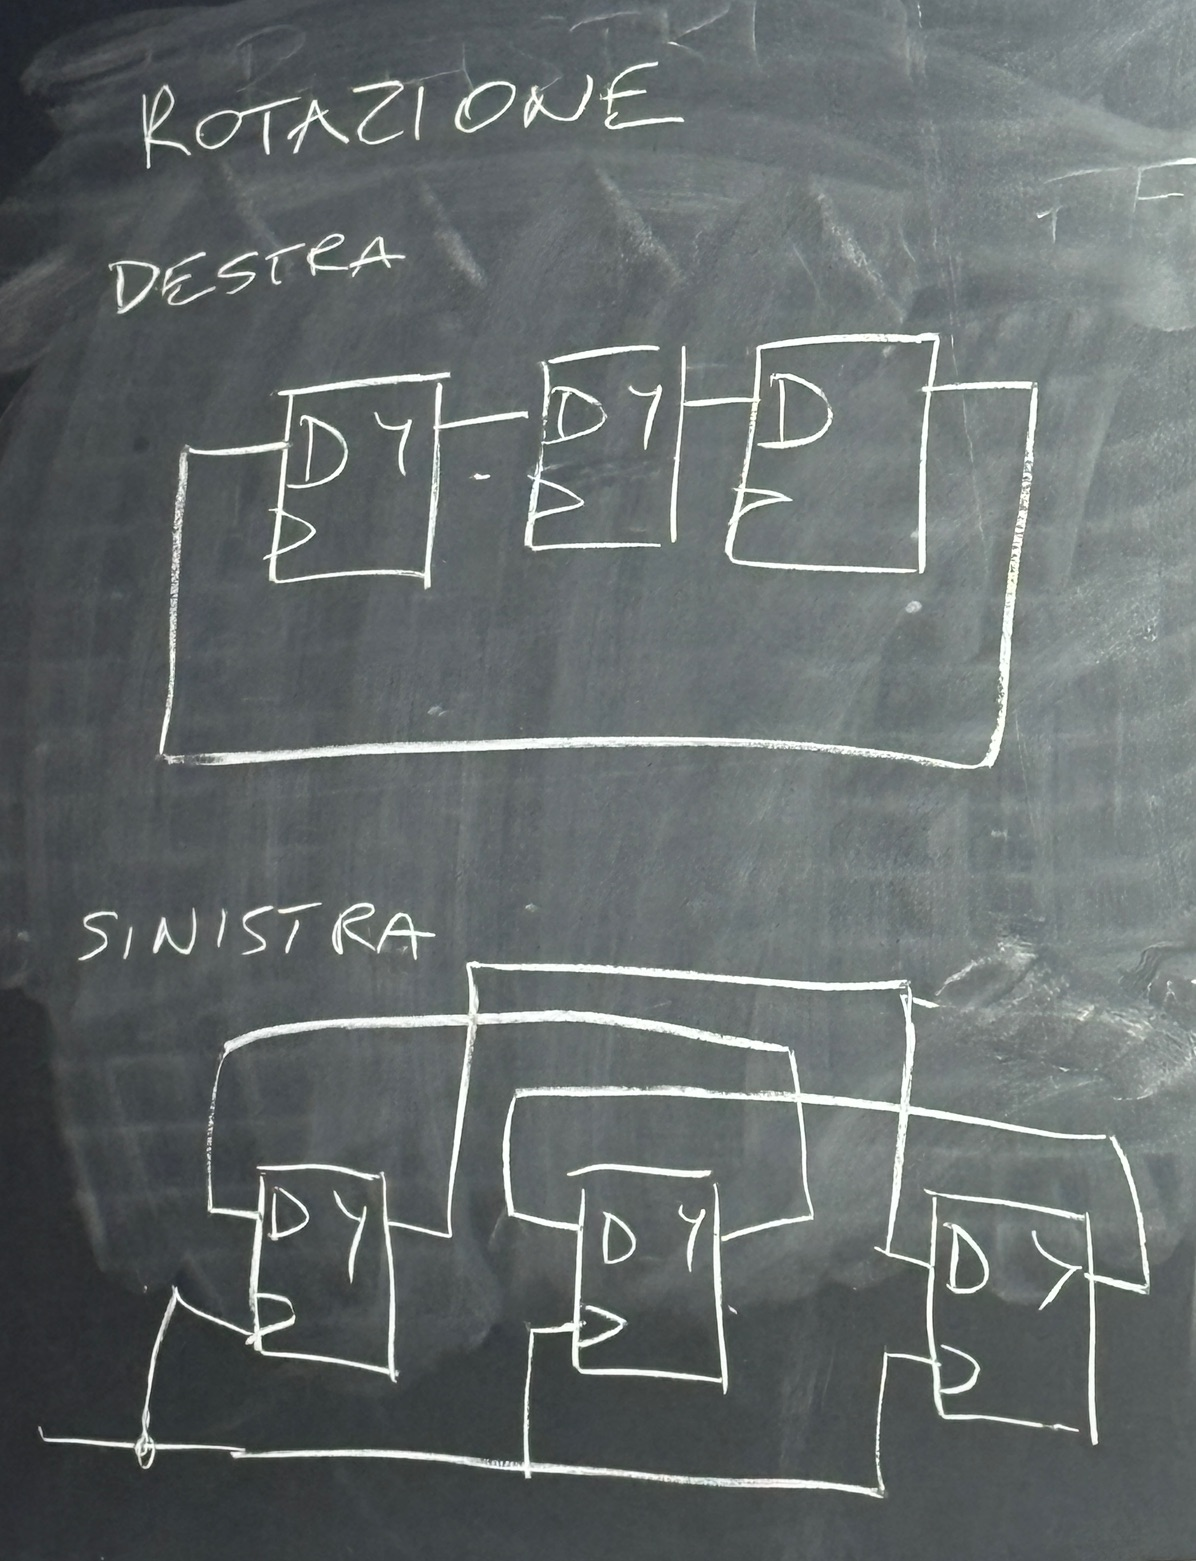 ROTAZIONE
DESTRA
D Y D Y D
SINISTRA
D Y D Y D Y